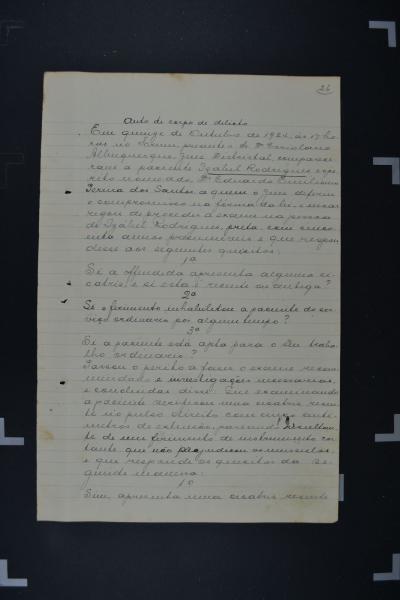 26
Auto de corpo de delicto
Em quinze de Outubro de 1924, ás 17 ho-
ras no Forum, presentes o Dr
Albuquerque, Juiz Districtal, compare-
ceu a paciente Izabel Rodrigues e o pe-
rito nomeado, Dr Eduardo
dos Santos, a quem o Juiz deferiu
o compromisso na forma da lei, e encar-
regou de proceder o exame na pessoa
de Izabel Rodrigues, preta, com cinco
enta annos e que respon-
desse aos seguintes quesitos:
1º
Si a offendida apresenta alguma ci-
catriz, e si esta é recente ou antiga?
2º
Si o ferimento inhabilitou a paciente do ser-
viço ordinario por algum tempo?
3º
Si a paciente está apta para o seu traba-
lho ordinario?
Passou o perito a fazer o exame recom-
mendado e investigações necessarias,
e concluidas disse: Que examinando
a paciente encontrou uma cicatriz recen-
te no pulso direito com cinco centi-
metros de extensão, parecendo resultan-
te de um ferimento de instrumento cor-
tante que não prejudicou os musculos,
e que responde os quesitos da se-
guinte maneira:
1º
Sim, apresenta uma cicatriz recente